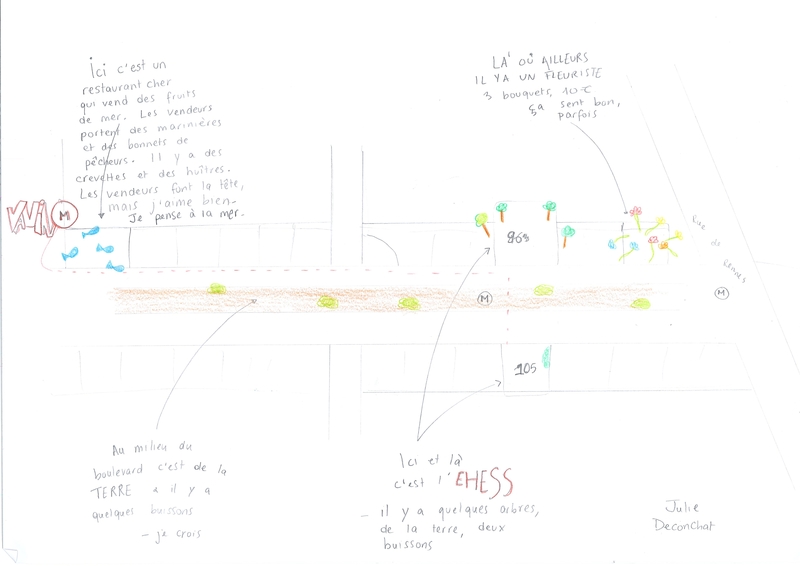 Ici c'est un
restaurant cher
qui vend des fruits
de mer. Les vendeurs
portent des marinières
et des bonnets de
pêcheurs. Il y a des
crevettes et des huîtres.
Les vendeurs font la tête,
mais j'aime bien.
Je pense à la mer.
LÀ OÙ AILLEURS
IL Y A UN FLEURISTE
3 bouquets, 10€
ça sent bon,
parfois
VAVIN
M
96
Rue de Rennes
M
M
105
Au milieu du
boulevard c'est de la
TERRE & il y a
quelques buissons
- je crois
Ici et là
c'est l'EHESS
- il y a quelques arbres,
de la terre, deux
buissons
Julie
Deconchat